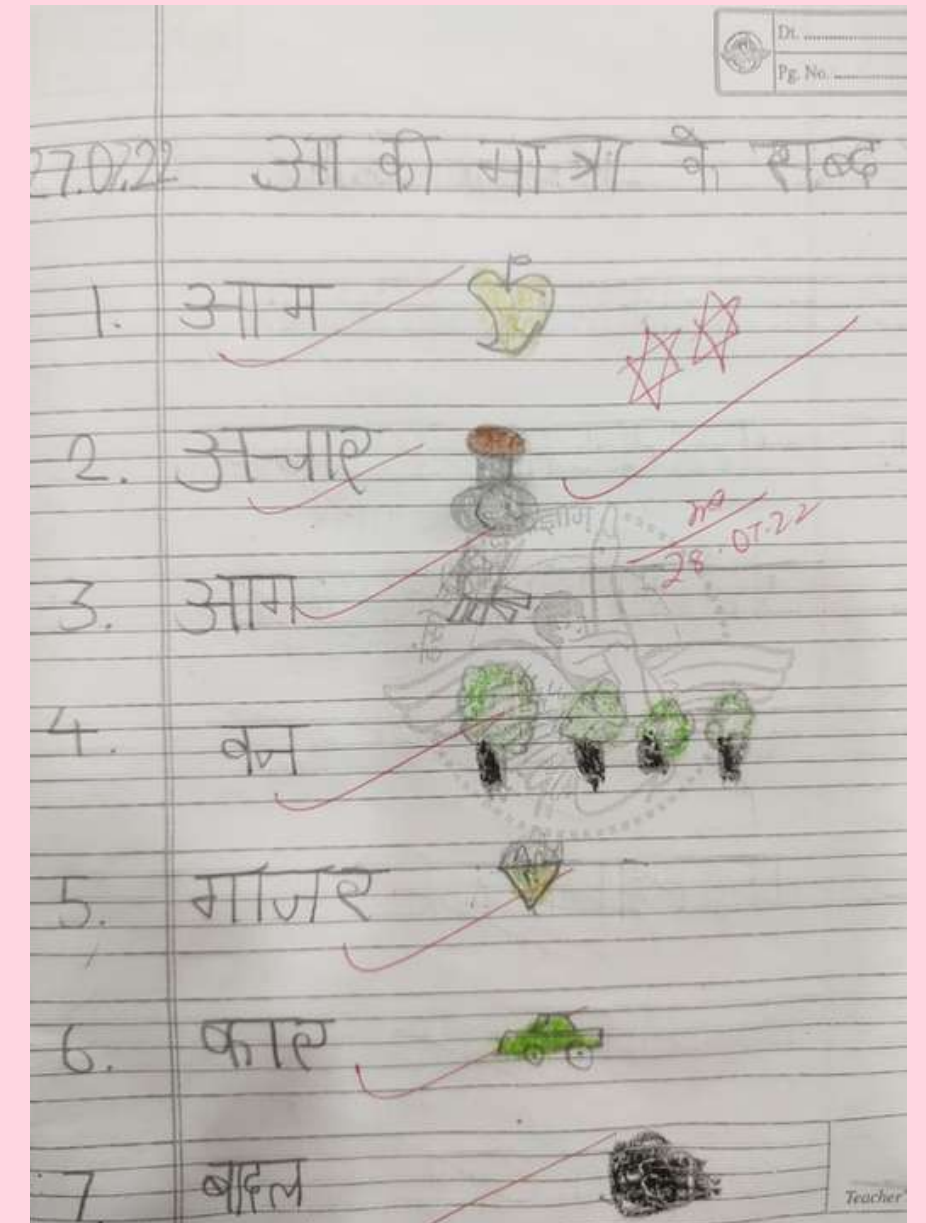 Dt. ....................
Pg. No. ....................
27.07.22 आ की मात्रा के शब्द
1. आम
2. अचार
28.07.22
3. आग
4. वन
5. गाजर
6. कार
7 बादल
Teacher'